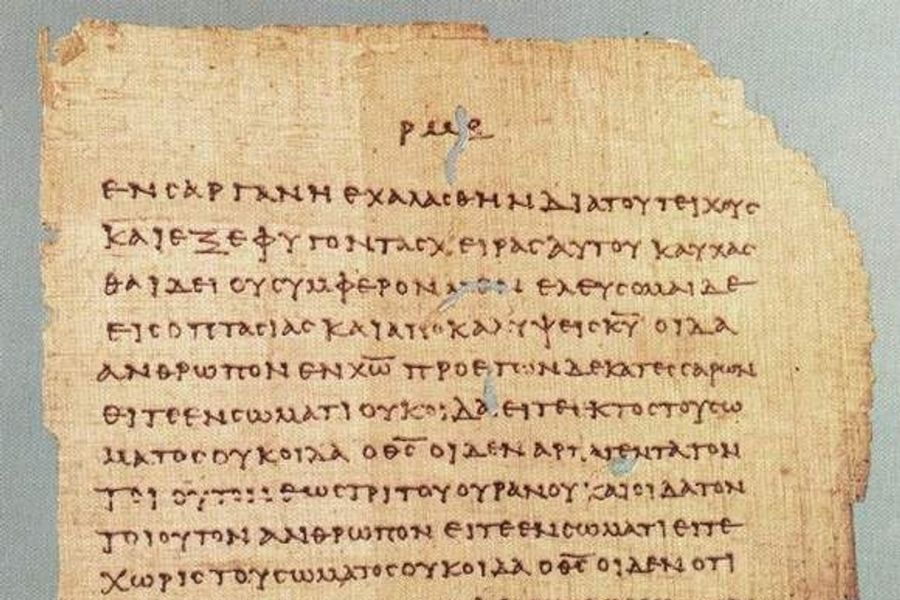 ρμε
ΕΝ ϹΑΡΓΑΝΗ ΕΧΑΛΑϹΘΗΝ ΔΙΑ ΤΟΥ ΤΕΙΧΟΥϹ
ΚΑΙ ΕΞΕΦΥΓΟΝ ΤΑϹ ΧΕΙΡΑϹ ΑΥΤΟΥ ΚΑΥΧΑϹ
ΘΑΙ ΔΕΙ ΟΥ ϹΥΜΦΕΡΟΝ ΕΛΕΥϹΟΜΑΙ ΔΕ
ΕΙϹ ΟΠΤΑϹΙΑϹ ΚΑΙ ΑΠΟΚΑΛΥΨΕΙϹ Κ̅Υ̅ ΟΙΔΑ
ΑΝΘΡΩΠΟΝ ΕΝ Χ̅Ω̅ ΠΡΟ ΕΤΩΝ ΔΕΚΑΤΕϹϹΑΡΩΝ
ΕΙΤΕ ΕΝ ϹΩΜΑΤΙ ΟΥΚ ΟΙΔΑ ΕΙΤΕ ΕΚΤΟϹ ΤΟΥ ϹΩ
ΜΑΤΟϹ ΟΥΚ ΟΙΔΑ Ο Θ̅Ϲ̅ ΟΙΔΕΝ ΑΡΠΑΓΕΝΤΑ ΤΟΝ
ΤΟΙΟΥΤΟΝ ΕΩϹ ΤΡΙΤΟΥ ΟΥΡΑΝΟΥ ΚΑΙ ΟΙΔΑ ΤΟΝ
ΤΟΙΟΥΤΟΝ ΑΝΘΡΩΠΟΝ ΕΙΤΕ ΕΝ ϹΩΜΑΤΙ ΕΙΤΕ
ΧΩΡΙϹ ΤΟΥ ϹΩΜΑΤΟϹ ΟΥΚ ΟΙΔΑ Ο Θ̅Ϲ̅ ΟΙΔΕΝ ΟΤΙ